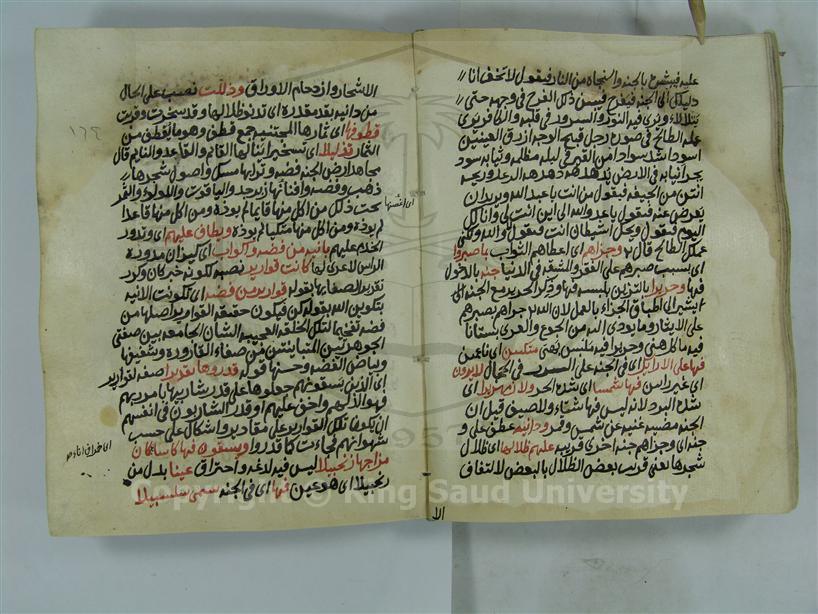 عليه فيبشره بالجنة والنجاة من النار فيقول لا تخف انا
دليلك الى الجنة فيفرح فيبين ذلك الفرح في وجهه حتى
يتلألأ ويرى فيه النور والسرور في قلبه والى
عمله الطالح في صورة رجل قبيح الوجه ازرق العينين
اسود اشد سوادا من القير في ليلة مظلمة وثيابه سود
يجر انيابه في الارض يدهده دهدهة الرعد وريحه
انتن من الجيفة فيقول من انت يا عبد الله ويريد ان
يعرض عنه فيقول يا عدو الله الى اين انت لي وانا لك
اليوم فيقول ويحك اشيطان انت فيقول لا والله ولكني
عملك الطالح قال وجزاهم اى اعطاهم الثواب بما صبروا
اى بسبب صبرهم على الفقر والشقة في الدنيا جنة بالدخول
فيها وحريرا بالتزين بلبسه فيها وذكر الحرير مع الجنة
يشير الى اطباق الجزاء بالعمل لان الله جزاهم بصبرهم
على الايثار وما يؤدى اليه من الجوع والعرى بستانا
فيه مأكل هنى وحريرا فيه ملبس بهى متكئين اى نائمين
فيها على الارائك اى في الجنة على السرر في الحجال لا يرون
اى غير رائين فيها شمسا اى شدة الحر ولا زمهريرا اى
شدة البرد لانه ليس فيها شتاء ولا صيف قيل ان
الجنة مضيئة غنية عن شمس وقمر ودانية عطف على
جنة اى وجزاهم جنة اخرى قريبة عليهم ظلالها اى ظلال
شجرها يعنى قريب بعض الظلال بالبعض لالتفاف
الا
الاشجار وازدحام الاوراق وذللت نصب على الحال
من دانية بقد مقدرة اى تدنو ظلالها وقد سخرت وقربت
قطوفها اى ثمارها المجتنية جمع قطف وهو ما يقطف من
الثمار تذليلا اى تسخيرا ينالها القائم والقاعد والنائم قال
مجاهد ارض الجنة فضة وترابها مسك واصول شجرها
ذهب وفضة وافنانها زبرجد والياقوت واللؤلؤ والثمر
اى اغصنها
تحت ذلك من اكل منها قائما لم يوذه ومن اكل منها قاعدا
لم يوذه ومن اكل منها متكئا لم يوذه ويطاف عليهم اى وتدور
الخدم عليهم بانية من فضة واكواب اى كيزان مدورة
الراس لا عرى لها كانت قواريرا نصبه لكونه خبر كان وكرر
تقرير الصفائها بقوله قواريرا من فضة اى تكونت الانية
بتكوين الله بقوله كن فيكون حقيقة القوارير اصلها من
فضة تفخيما لتلك الخلقة العجيبة الشان الجامعة بين صفتى
الجوهرين المتباينتين من صفاء القارورة وشفيفها
وبياض الفضة وحسنها قوله قدروها تقديرا صفة لقوارير
اى الذين يسقونهم جعلوها على قدر شاربها بامر ربهم
فهو الذ لهم واخف عليهم او قدر الشاربون في انفسهم
ان يكون تلك القوارير على مقادير واشكال على حسب
شهواتهم فجاءت كما قدروا ويسقون فيها كاسا كان
مزاجها زنجبيلا ليس فيه لدغة واحتراق عينا بدل من
زنجبيلا اى هو عين فيها اى في الجنة تسمى سلسبيلا
Copyright © King Saud University
1957